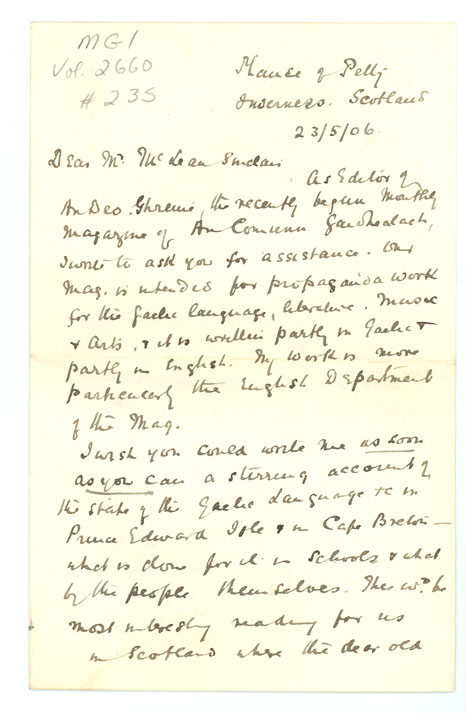 MG1
Vol. 2660
# 235
Manse of Petty
Inverness. Scotland
23/5/06.
Dear Mr. McLean Sinclair
As Editor of
An Deo Ghreine, the recently begun Monthly
Magazine of An Comunn Gaidhealach,
I write to ask you for assistance. Our
Mag. is intended for propaganda work
for the Gaelic language, literature, Music
& Arts, & it is written partly in Gaelic &
partly in English. My work is more
particularly the English Department
of the Mag.
I wish you could write me as soon
as you can a stirring account of
the state of the Gaelic Language &c in
Prince Edward Isle & in Cape Breton—
what is done for it in Schools & what
by the people themselves. This wd. be
most interesting reading for us
in Scotland where the dear old